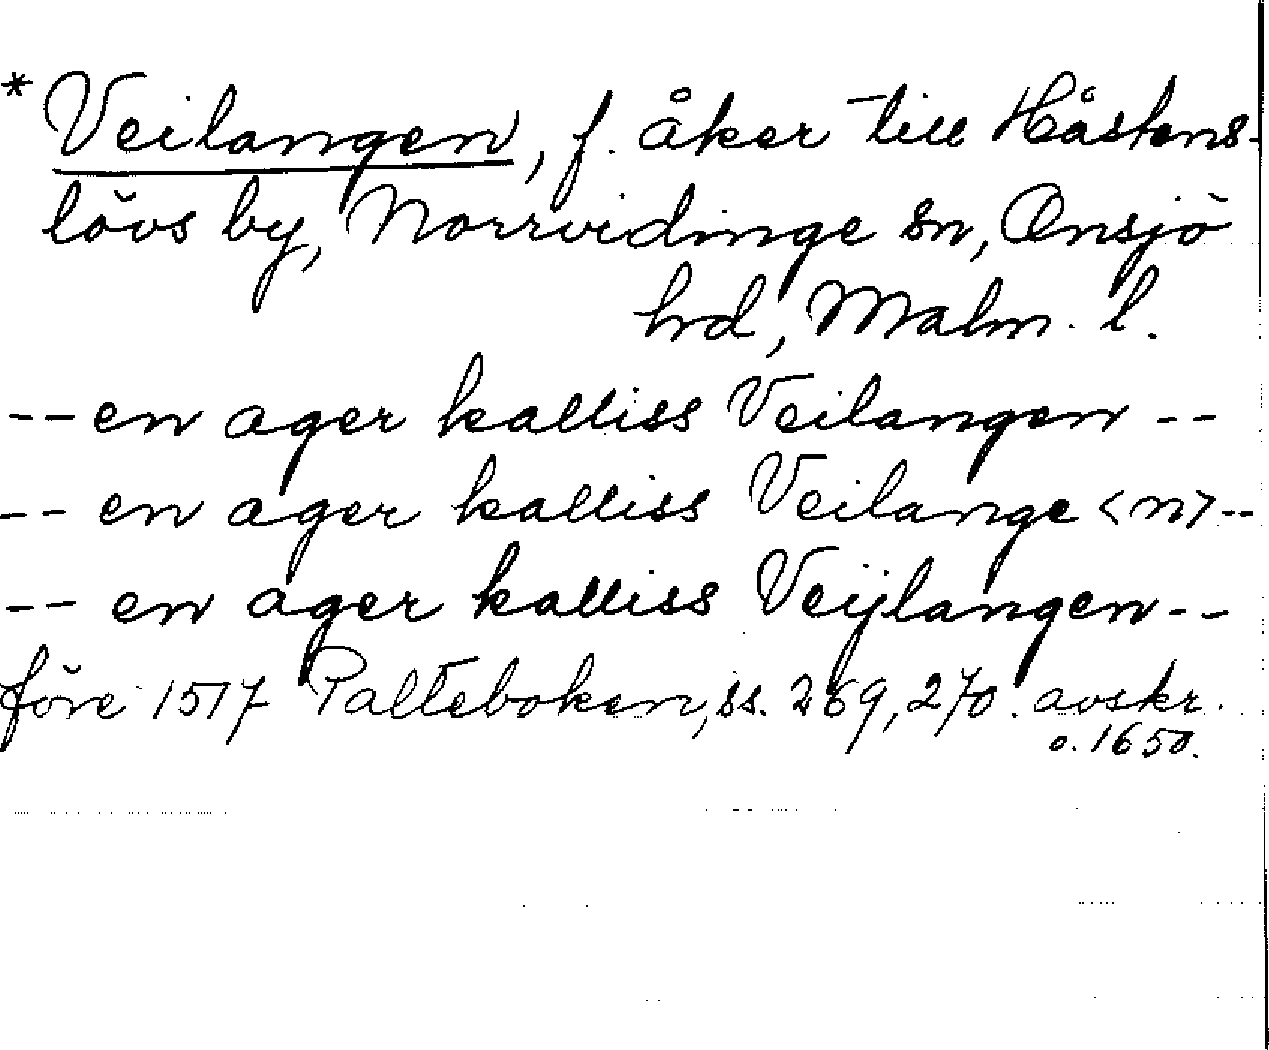 * Veilangen, f. åker till Håstens-
lövs by, Norrvidinge sn, Onsjö
hrd, Malm. l.
-- en ager kalliss Veilangen --
-- en ager kalliss Veilange <n> --
-- en ager kalliss Veijlangen --
före 1517 Palteboken, ss. 269, 270. avskr.
o. 1650.